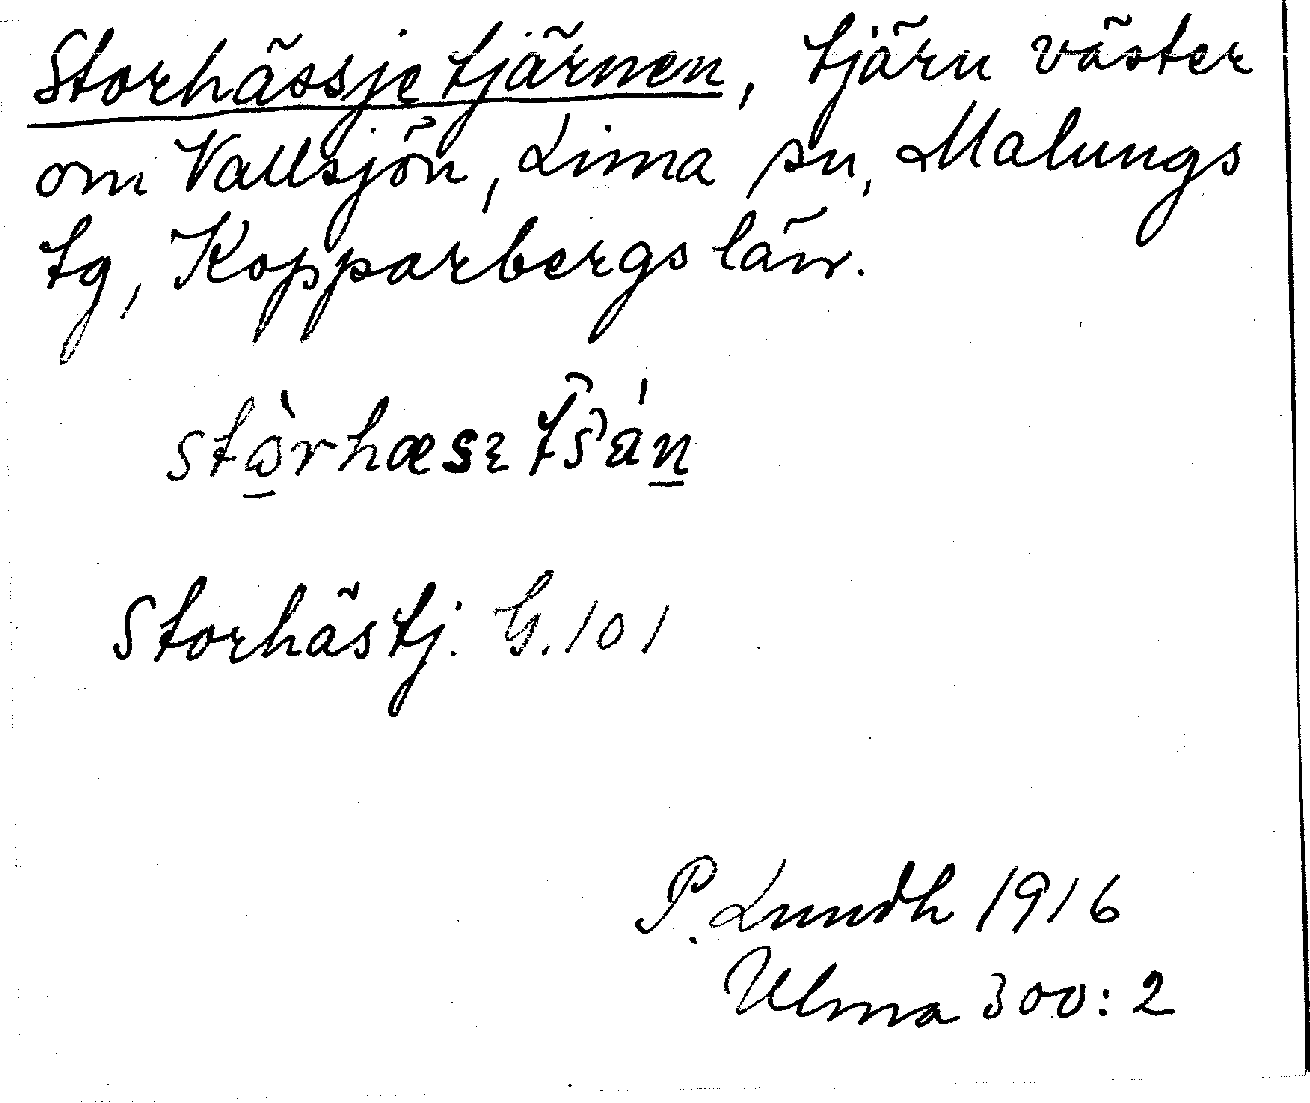 Storhässjetjärnen, tjärn väster
om Vallsjön, Lima sn, Malungs
tg, Kopparbergs län.
Storhästj. G. 101
P. Lundh 1916
Ulma 300:2